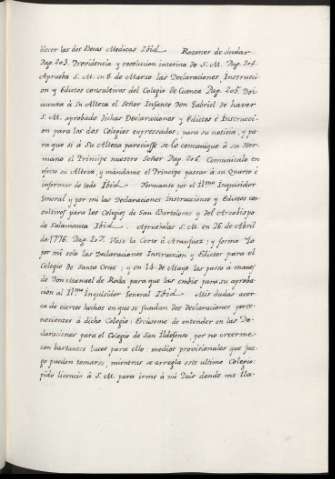 llecer las dos Becas Medicas Ibid. Razones de dudar
Pag. 203. Providencia y resolucion interina de S. M. Pag. 204.
Aprueba S. M. en 8 de Marzo las Declaraciones, Instrucci-
on y Edictos consultivos del Colegio de Cuenca Pag. 205.
cuenta à su Alteza el Señor Infante Don Gabriel de haver
S. M. aprobado dichas Declaraciones y Edictos è Instrucci-
on para los dos Colegios expressados, para su noticia, y pa-
ra que si à Su Alteza pareciesse se lo comunique à su Her-
mano el Principe nuestro Señor Pag. 206. Comunicalo en
efecto su Alteza, y mandame el Principe passar à su Quarto è
informar de todo Ibid. Formanse por el Ill.mo Inquisidor
General y por mi las Declaraciones Instrucciones y Edictos con-
vocatorios para los Colegios de San Bartolome y del Arzobispo
de Salamanca Ibid. Apruebalas S. M. en 26 de Abril
de 1776. Pag. 207. Vase la Corte à Aranjuez; y formo Yo
por mi solo las Declaraciones Instruccion y Edictos para el
Colegio de Santa Cruz; y en 14 de Mayo las passo à manos
de Don Manuel de Roda para que las embie para su aproba-
cion al Ill.mo Inquisidor General Ibid. Mis dudas acer-
ca de ciertos hechos en que se fundan dos Declaraciones perte-
necientes à dicho Colegio: Escusome de entender en las De-
claraciones para el Colegio de San Ildefonso, por no creerme
con bastantes luces para ello: medios provisionales que juz-
go pueden tomarse, mientras se arregla este ultimo Colegio:
pido licencia à S. M. para irme à mi Pais donde me lla-